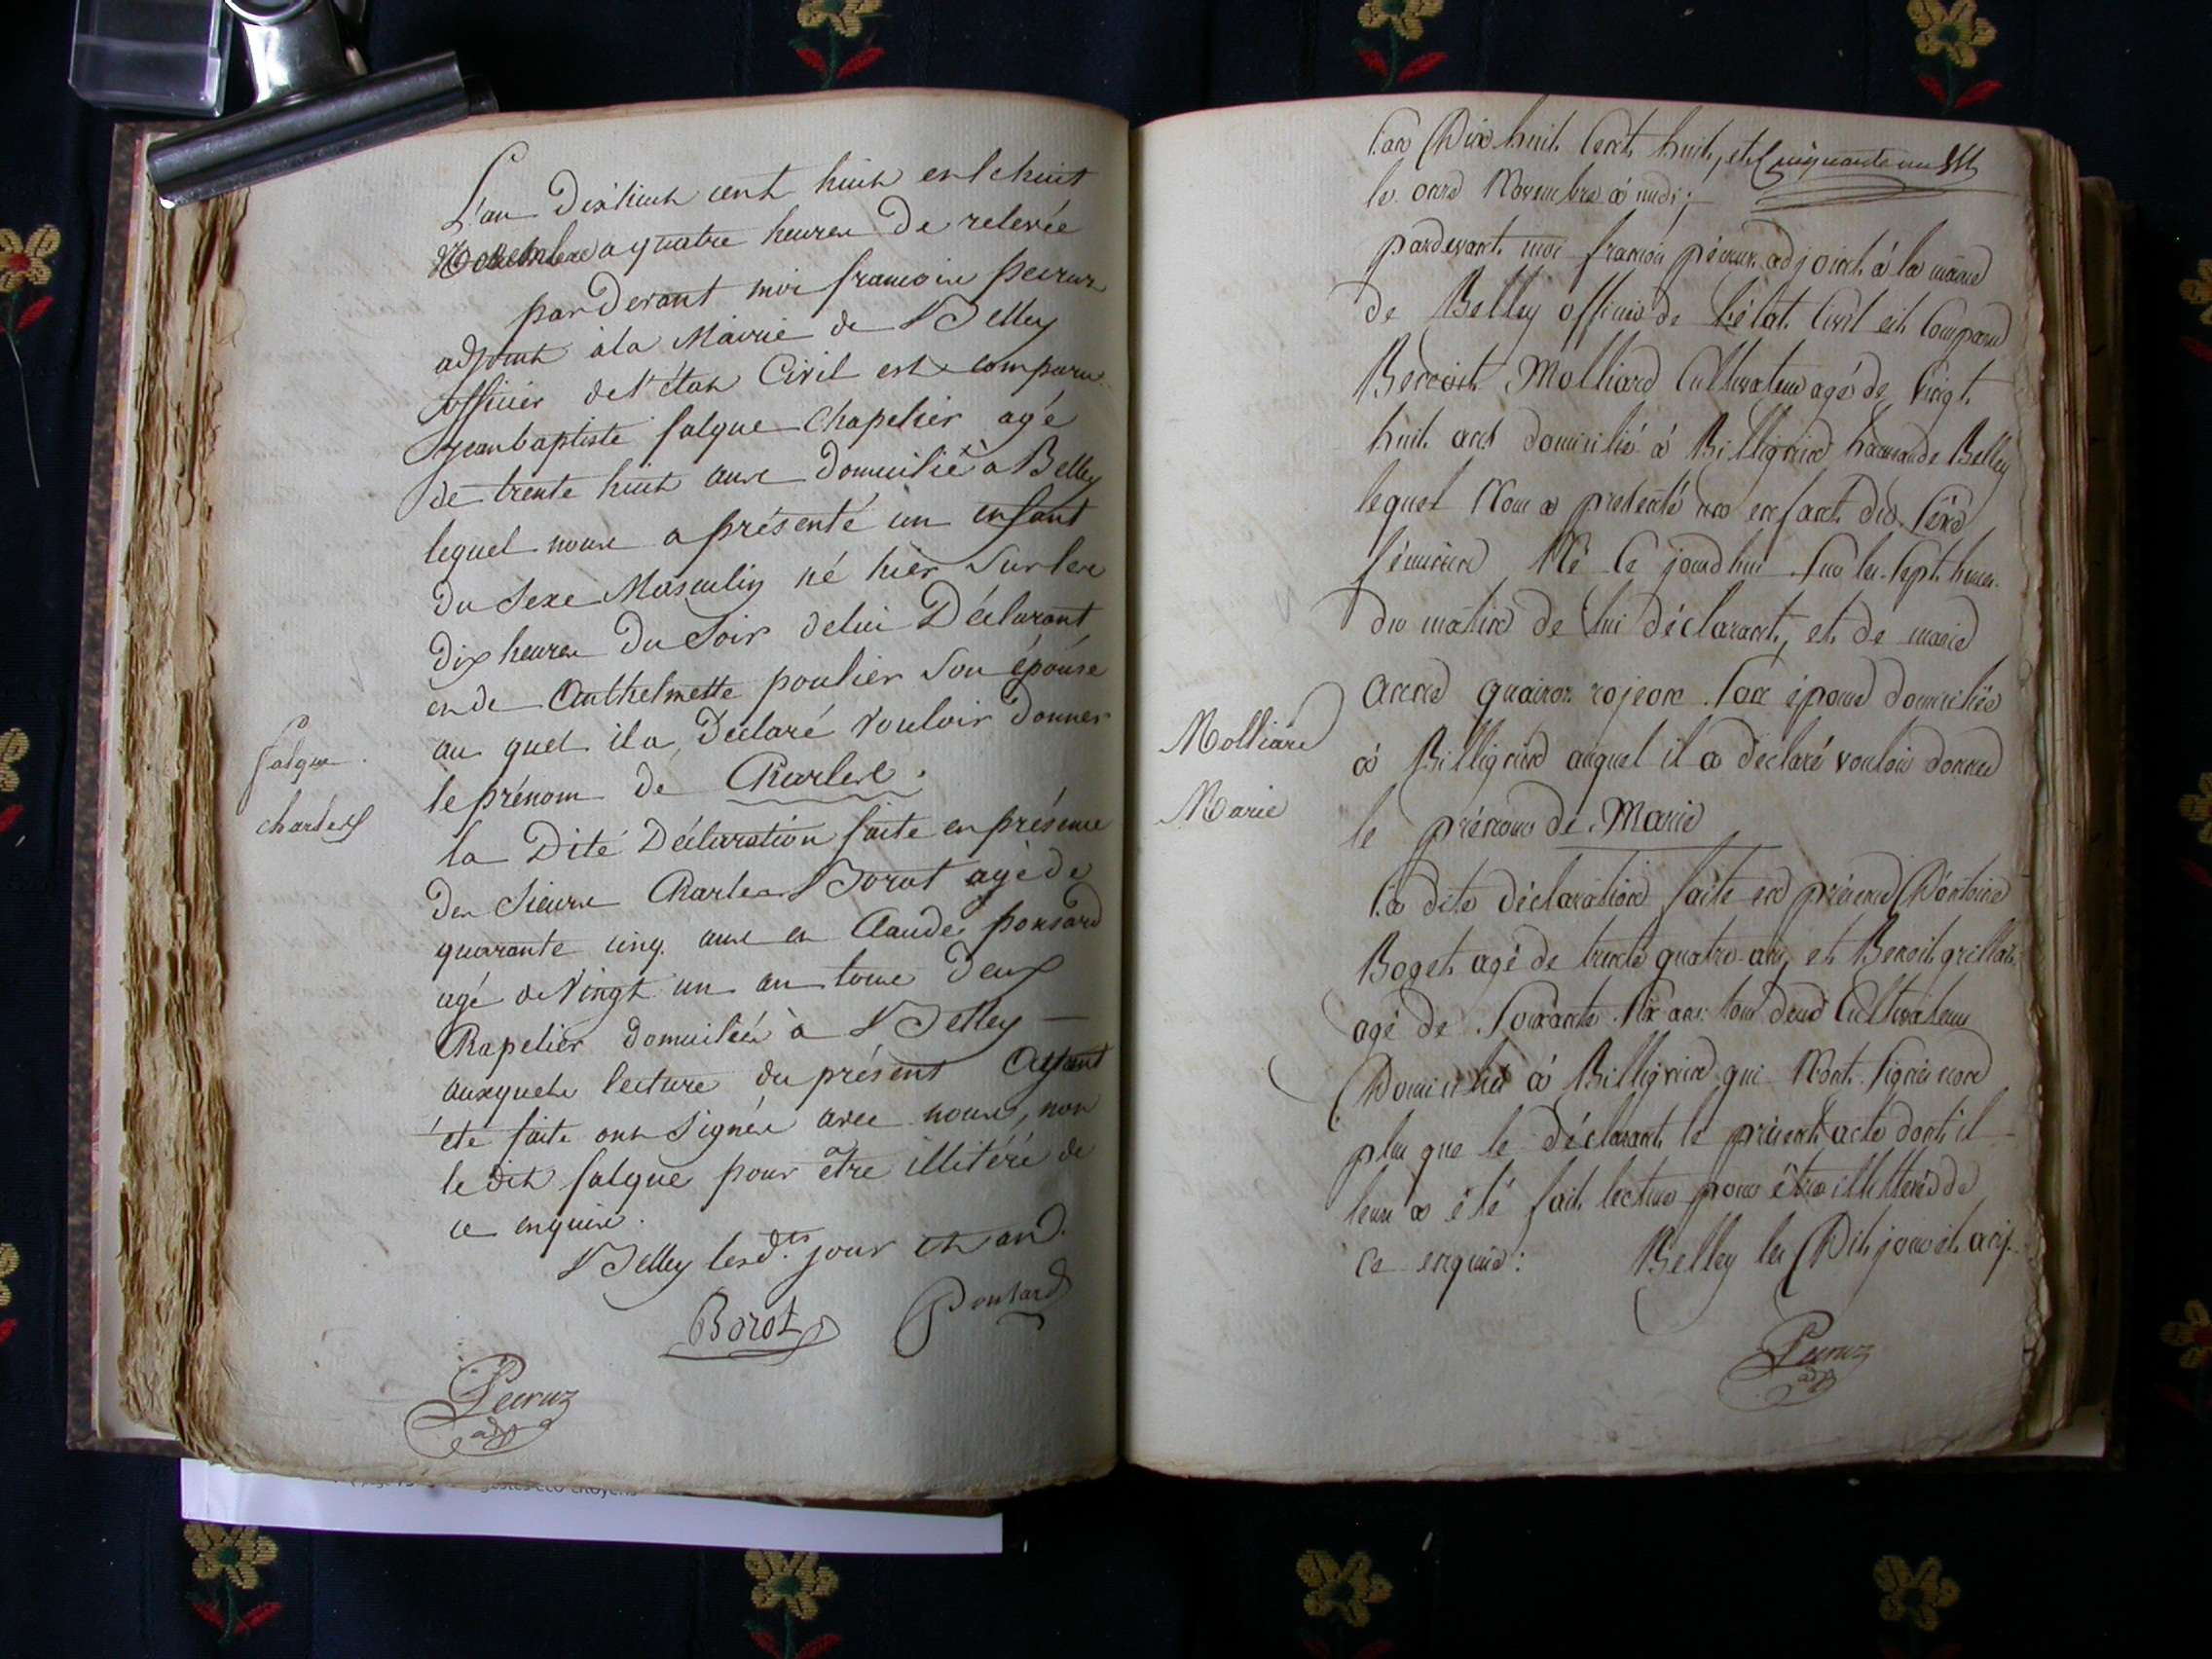 L'an Dixhuit cent huit et le huit
Novembre a quatre heures De relevée
par Devant moi francois pecruz
adjoint à la Mairie de Belley
officier de l'état Civil est comparu
jean baptiste falque Chapelier agé
de trente huit ans Domicilié a Belley
lequel nous a présenté un enfant
du Sexe Masculin né hier Sur les
Dix heures Du Soir de lui Déclarant
et de Anthelmette poulier Son épouse
au quel il a Déclaré Vouloir Donner
le prénom de Charles.
falque
charles
la Dite Déclaration faite en présence
Des Sieurs Charles Borot agé de
quarante cinq ans et Claude ponsard
agé de Vingt un an tous Deux
Chapelier domiciliés à Belley
auxquels lecture du présent Ayant
été faite ont Signés avec nous, non
le dit falque pour être illitéré de
ce enquis.
Belley lesd.ts jour et an.
Borot Ponsard
Pecruz
adj
L'an Dix huit Cent huit, et
le onze Novembre à midi;
pardevant moi francois pécruz adjoint à la mairie
de Belley officier de l'état Civil est Comparu
Benoit Molliard Cultivateur agé de Vingt
huit ans domicilié à Billignin hameau de Belley
lequel Nous a présenté un enfant du Séxe
féminin Né Ce jourd'hui Sur les Sept heures
du matin de lui déclarant, et de marie
Anne rojeon Son épouse domiciliée
à Billignin auquel il a déclaré vouloir donner
le prénom de Marie
Molliard
Marie
la dite déclaration faite en présence D'antoine
Boget agé de trente quatre ans, et Benoit grillat
agé de Soixante Six ans tous deux Cultivateurs
Domiciliés à Billignin qui N'ont Signés non
plus que le déclarant le présent acte dont il
leur a été fait lecture pour être illittérés de
ce enquis: Belley les Dit jour et an
Pecruz
adj